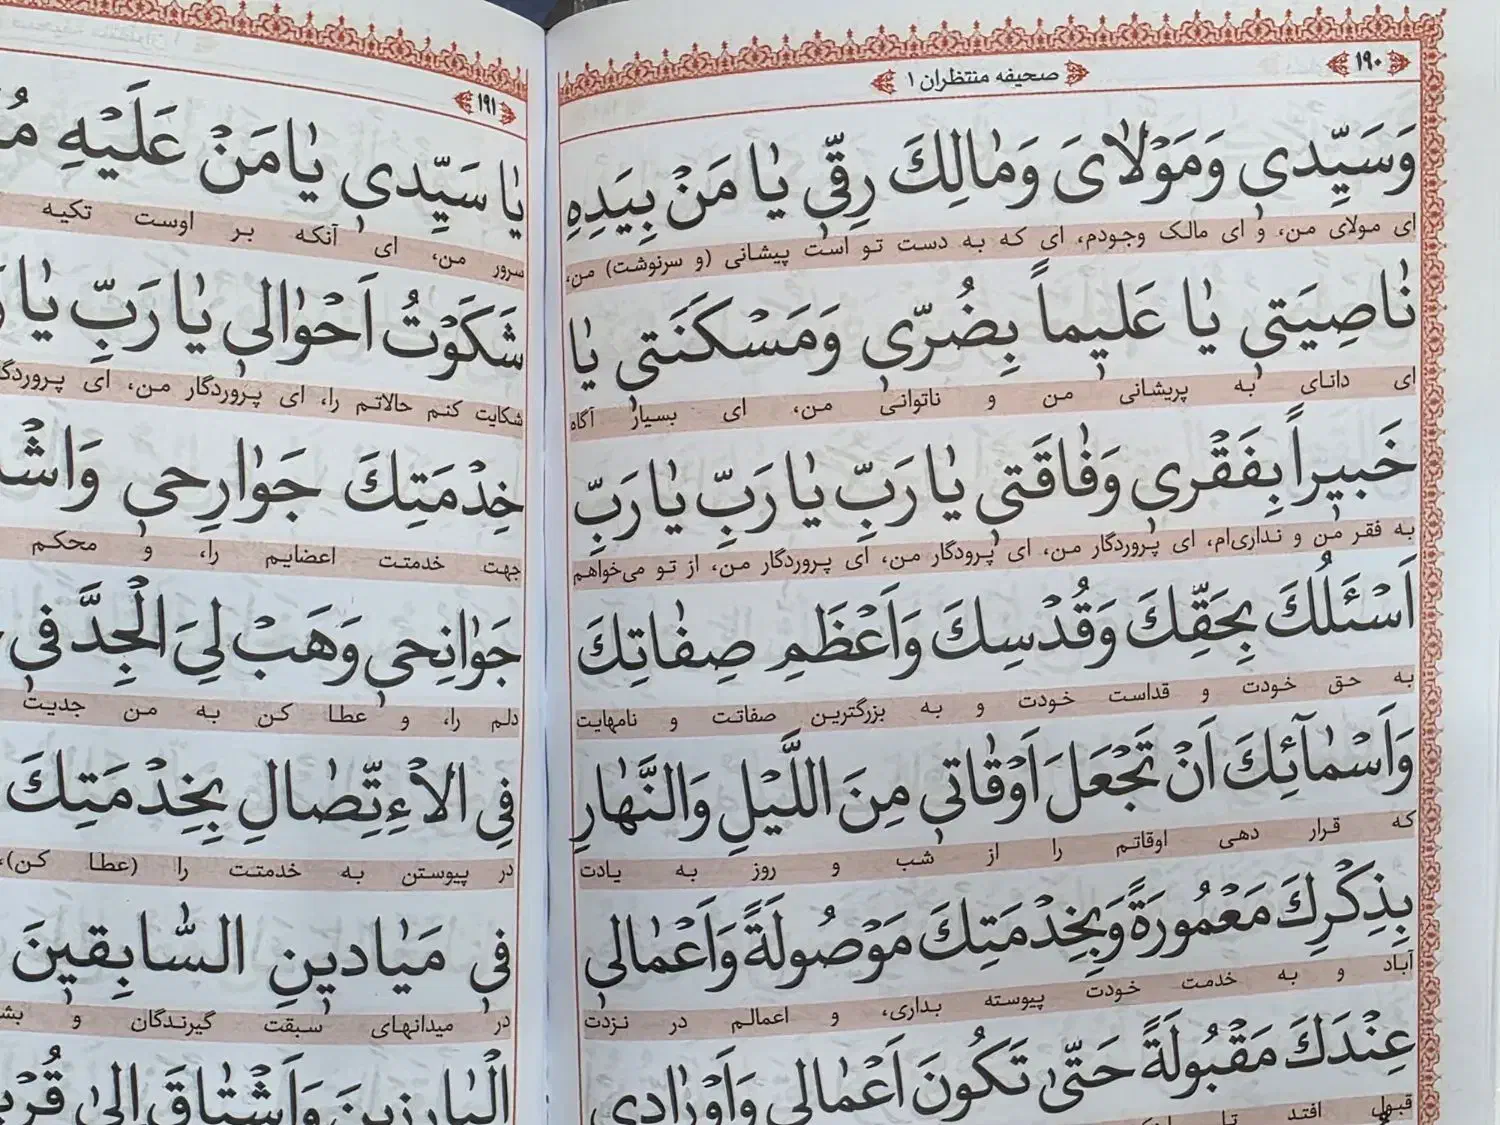 ۱۹۰
صحیفه منتظران ۱
وَسَیِّدی وَمَوْلٰایَ وَمٰالِکَ رِقّی یٰا مَنْ بِیَدِهِ
ای مولای من، و ای مالک وجودم، ای که به دست تو است پیشانی (و سرنوشت) من،
نٰاصِیَتی یٰا عَلیماً بِضُرّی وَمَسْکَنَتی یٰا
ای دانای به پریشانی من و ناتوانی من، ای بسیار آگاه
خَبیراً بِفَقْری وَفٰاقَتی یٰا رَبِّ یٰا رَبِّ یٰا رَبِّ
به فقر من و نداری‌ام، ای پروردگار من، ای پرودگار من، ای پروردگار من، از تو می‌خواهم
اَسْئَلُکَ بِحَقِّکَ وَقُدْسِکَ وَاَعْظَمِ صِفٰاتِکَ
به حق خودت و قداست خودت و به بزرگترین صفاتت و نامهایت
وَاَسْمٰآئِکَ اَنْ تَجْعَلَ اَوْقٰاتی مِنَ اللَّیْلِ وَالنَّهٰارِ
که قرار دهی اوقاتم را از شب و روز به یادت
بِذِکْرِکَ مَعْمُورَةً وَبِخِدْمَتِکَ مَوْصُولَةً وَاَعْمٰالی
آباد و به خدمت خودت پیوسته بداری، و اعمالم در نزدت
عِنْدَکَ مَقْبُولَةً حَتّیٰ تَکُونَ اَعْمٰالی وَاَوْرٰادی
قبول افتد تا
۱۹۱
یٰا سَیِّدی یٰا مَنْ عَلَیْهِ
سرور من، ای آنکه بر اوست تکیه
شَکَوْتُ اَحْوٰالی یٰا رَبِّ یٰا
شکایت کنم حالاتم را، ای پروردگار من، ای
خِدْمَتِکَ جَوٰارِحی
جهت خدمتت اعضایم را، و محکم
جَوٰانِحی وَهَبْ لِیَ الْجِدَّ فی
دلم را، و عطا کن به من جدیت
فِی الْاِتِّصٰالِ بِخِدْمَتِکَ
در پیوستن به خدمتت را (عطا کن)،
فی مَیٰادینِ السّٰابِقینَ
در میدانهای سبقت گیرندگان و
الْبٰارِزینَ وَاَشْتٰاقَ اِلیٰ